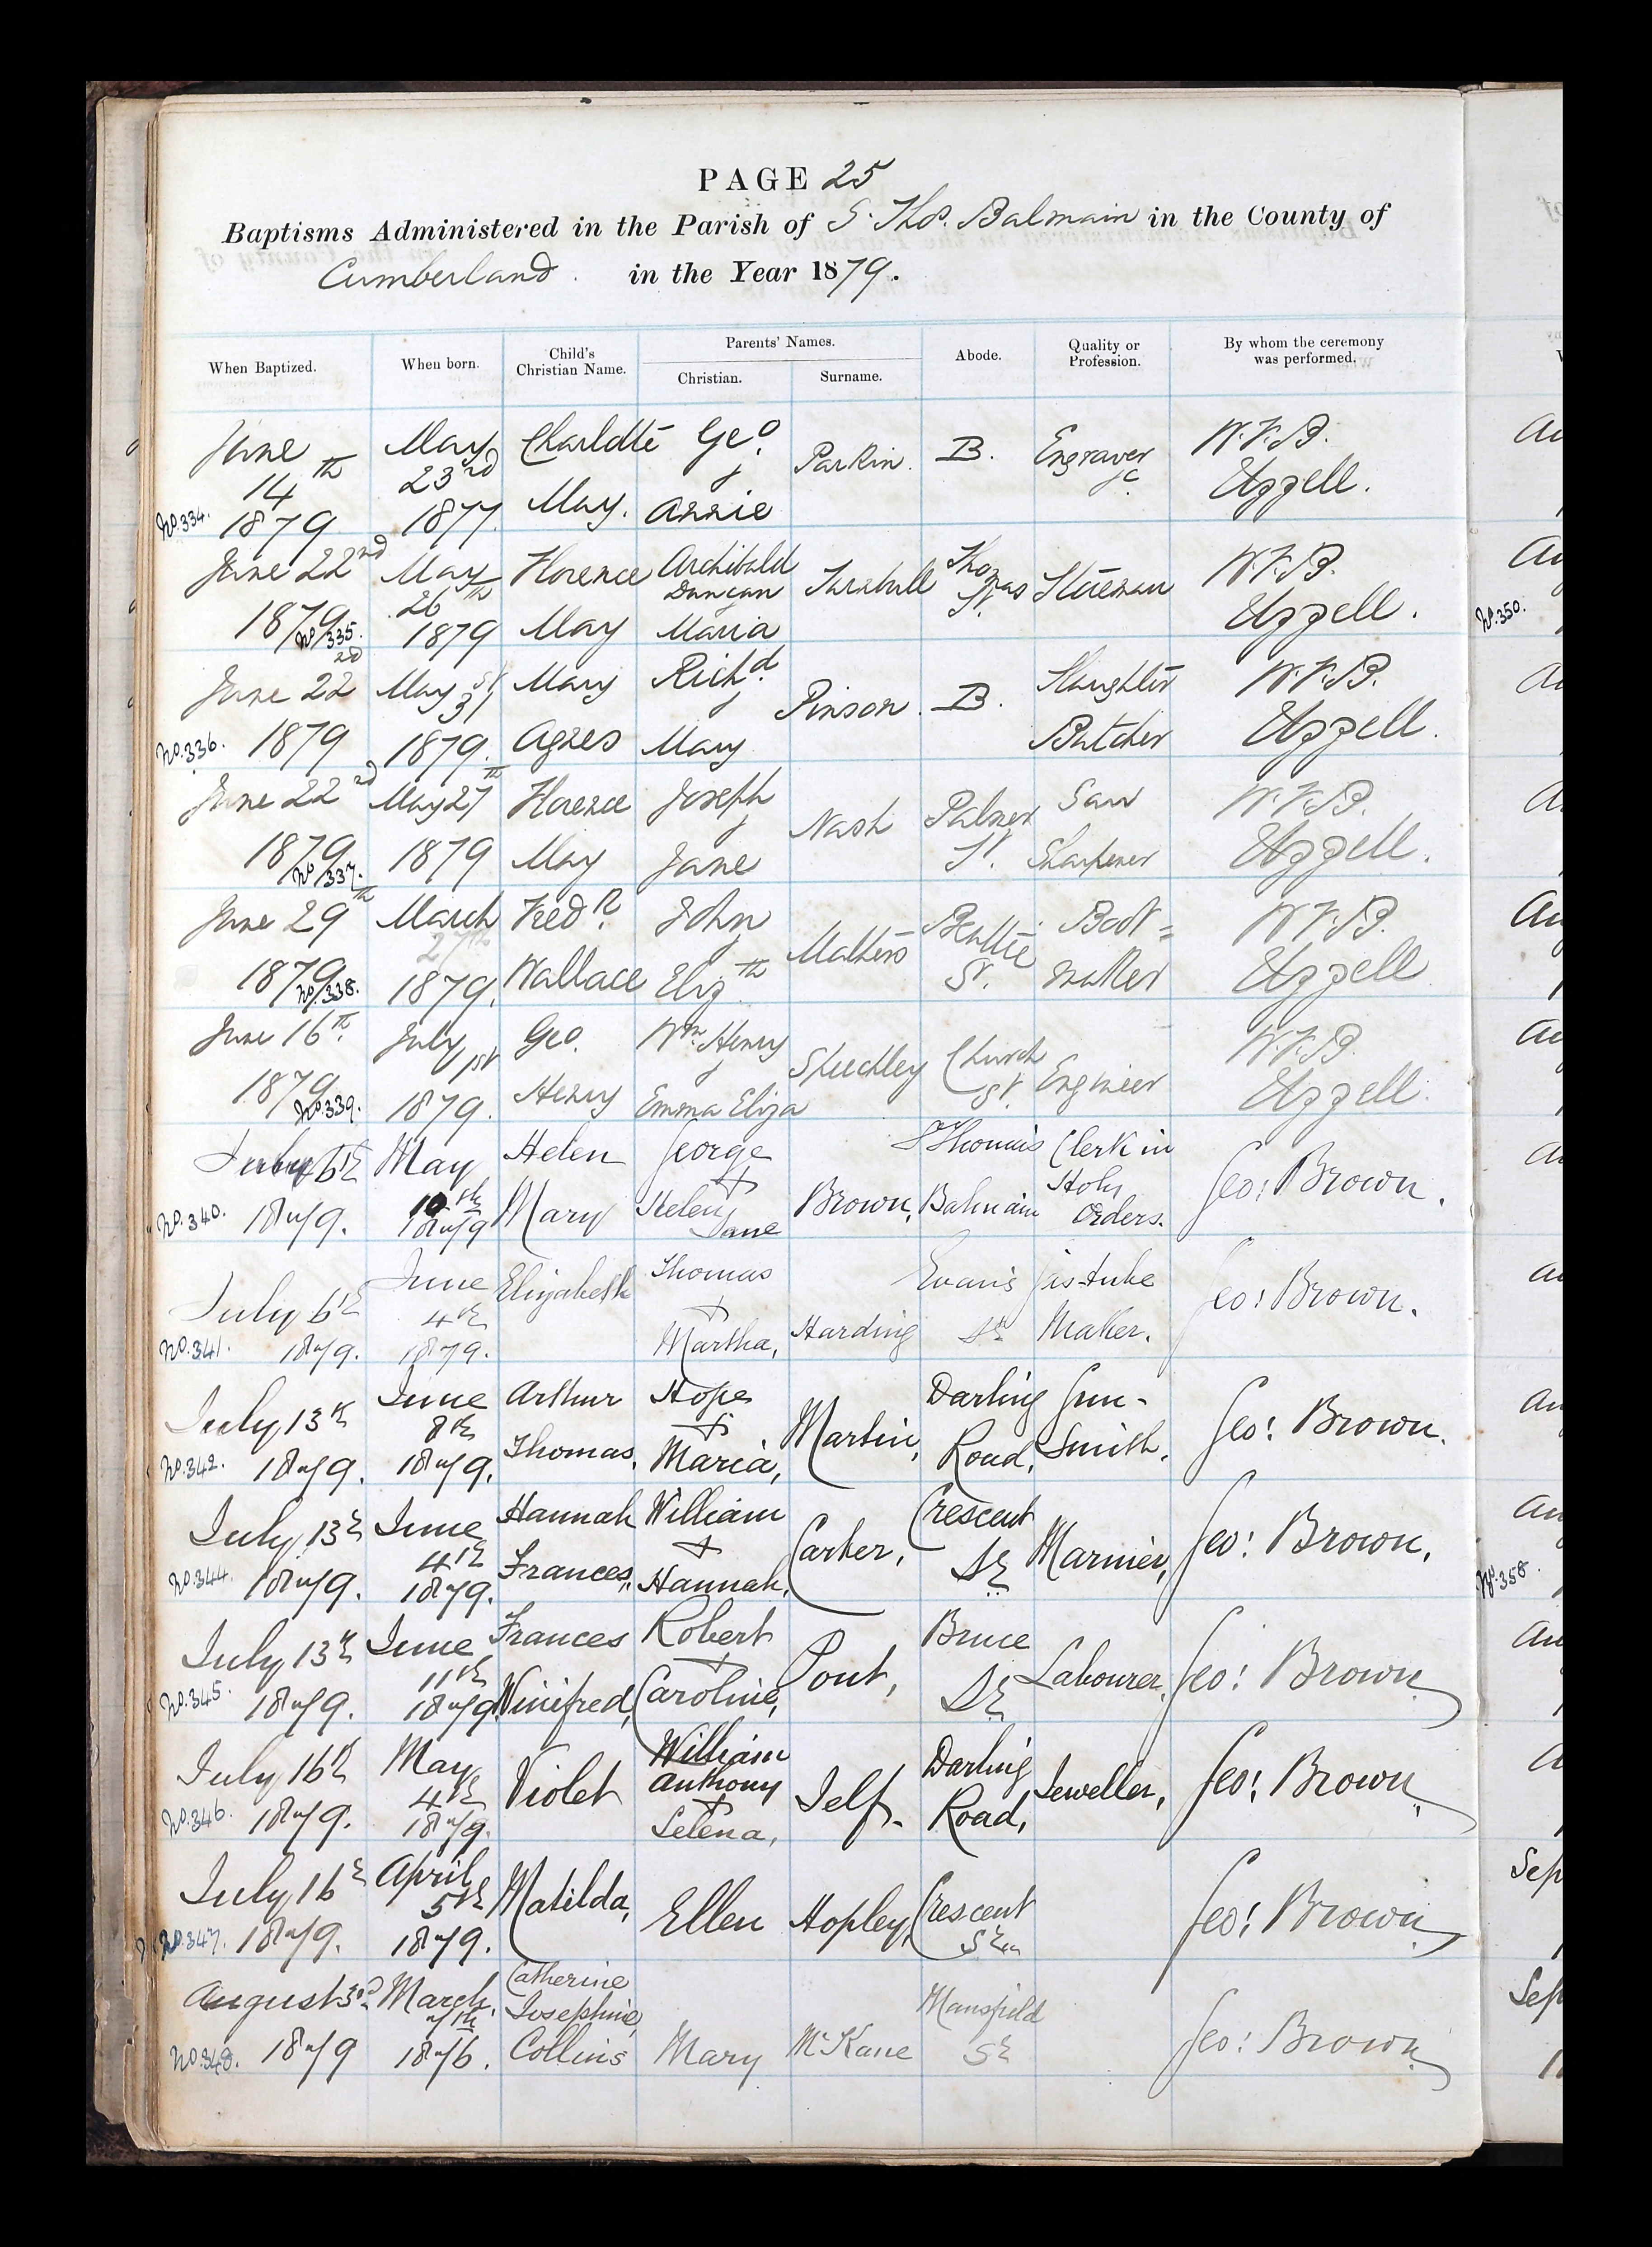 PAGE 25
Baptisms Administered in the Parish of S. Thos. Balmain in the County of
Cumberland. in the Year 1879.
When Baptized. When born. Child's Christian Name. Parents' Names. Christian. Surname. Abode. Quality or Profession. By whom the ceremony was performed.
June May Charlotte Geo. W.F.B.
14th 23rd & Parkin. B. Engraver &c Uzzell.
No.334. 1879 1877. May. Annie
June 22nd May Florence Archibald Thomas W.F.B.
26th Duncan & Turnbull St. Stereman Uzzell.
1879 No.335. 1879 May Maria
June 22nd May 31st Mary Richd. & Pinson. B. Slaughter W.F.B.
No.336. 1879 1879. Agnes Mary Butcher Uzzell.
June 22nd May 27th Florence Joseph & Nash Palmer Saw W.F.B.
1879 No.337. 1879 May Jane St. Sharpener Uzzell.
June 29th March Fredk. John & Mathers Beattie Boot= W.F.B.
27th
1879 No.338. 1879. Wallace Elizth St. maker Uzzell
June 16th. July 1st Geo. Wm. Henry & Speechley Church W.F.B.
1879 No.339. 1879. Henry Emma Eliza St. Engineer Uzzell.
July 6th May Helen George + S Thomas Clerk in Geo: Brown.
10th Holy
No.340. 1879. 1879 Mary Helen Jane Brown, Balmain Orders.
July 6th June Elizabeth Thomas + Evans Gis-tube Geo: Brown.
4th
No.341. 1879. 1879. Martha, Harding St Maker.
July 13th June Arthur Hope + Martin, Darling Gun- Geo: Brown.
8th
No.342. 1879. 1879. Thomas, Maria, Road, Smith.
July 13th June Hannah William + Carter, Crescent Marnier, Geo: Brown.
4th
No.344. 1879. 1879. Frances, Hannah, St
July 13th June Frances Robert + Pont, Bruce Labourer, Geo: Brown
11th
No.345. 1879. 1879. Winifred, Caroline, St
July 16th May Violet William Darling Jeweller, Geo: Brown
4th Anthony + Self.
No.346. 1879. 1879. Selena, Road,
July 16th April Matilda, Ellen Hopley, Crescent Geo: Brown
5th
No.347. 1879. 1879. St
August 3rd March, Catherine Mansfield Geo: Brown
7th Josephine,
No.348. 1879 1876. Collins Mary McKane St
No.350.
No.358